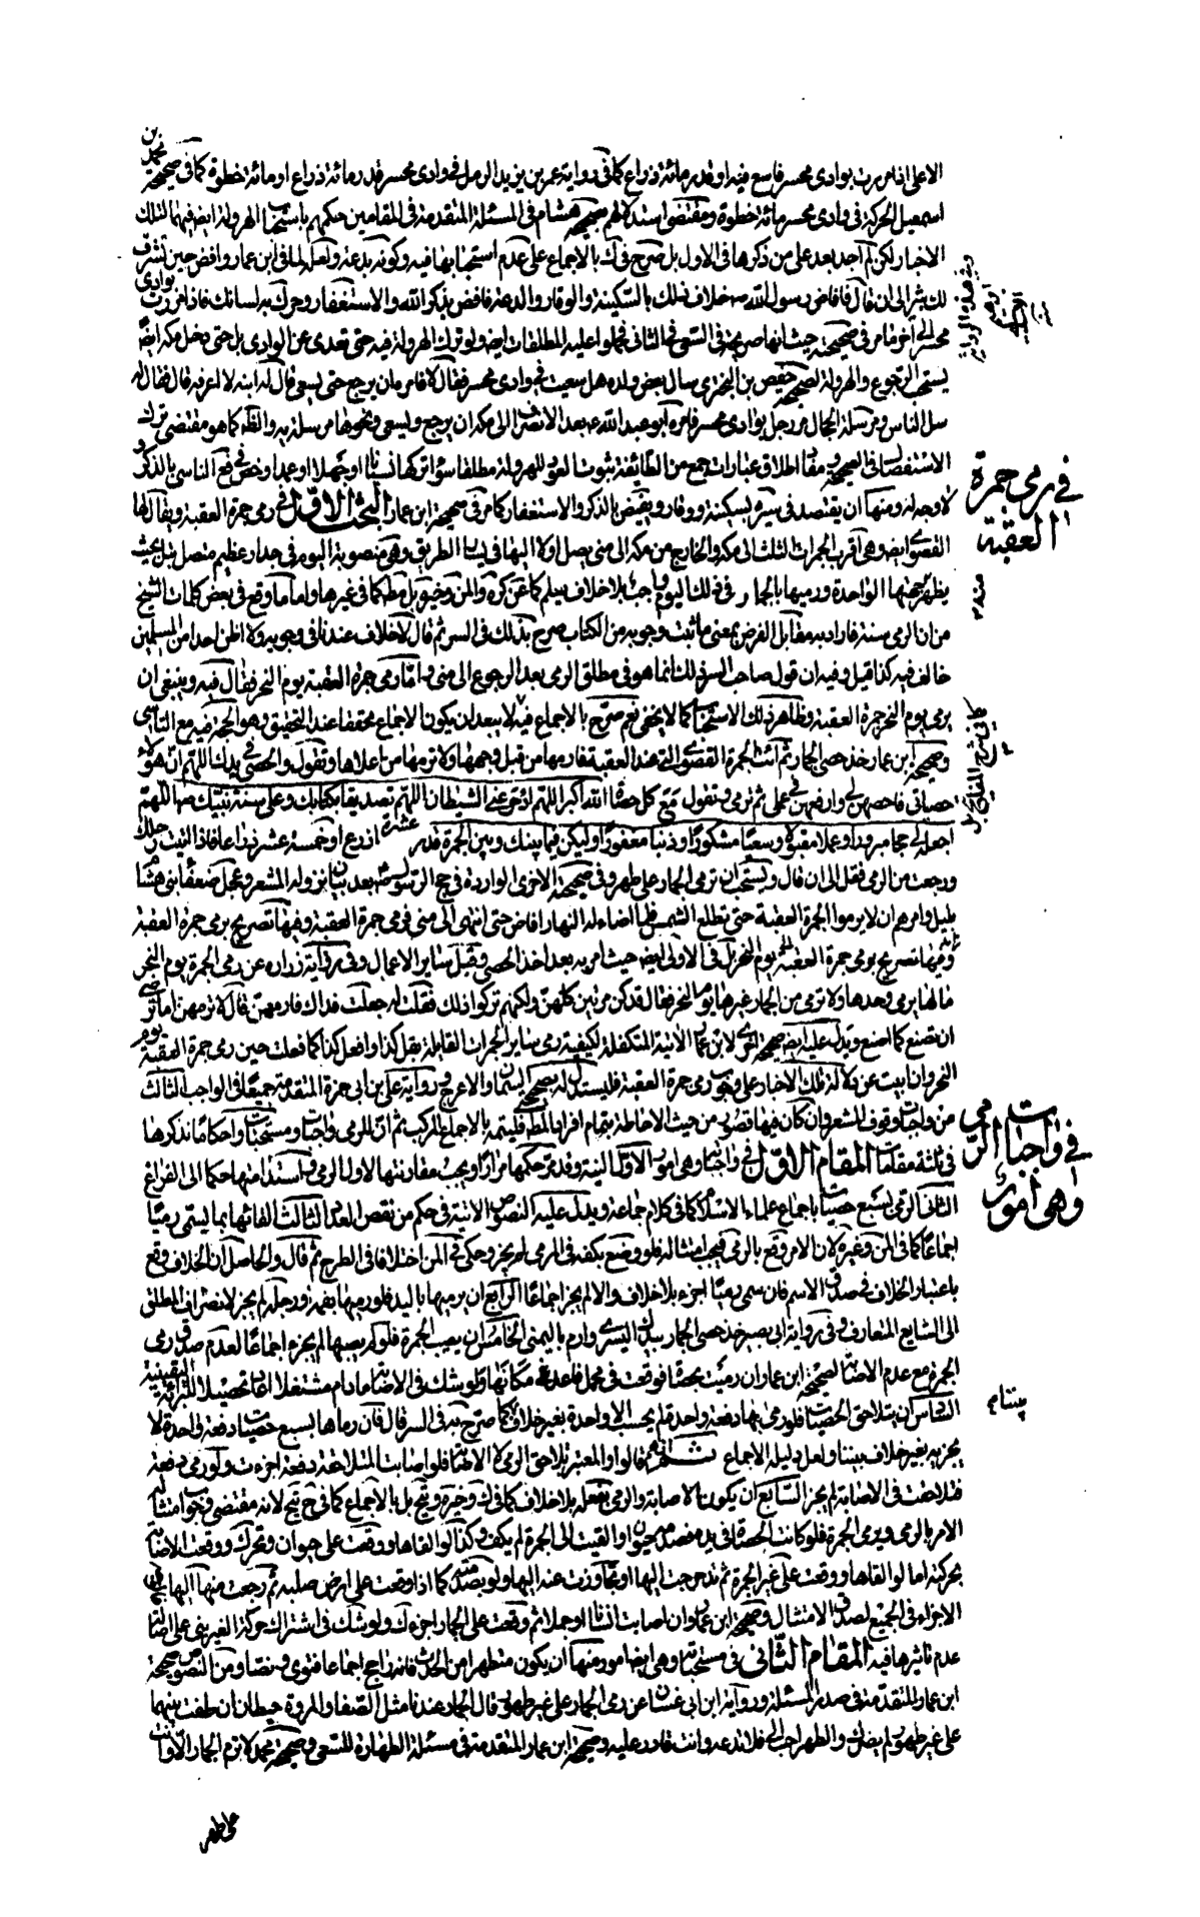 الاعلى اذا مررت بوادى محسر فاسع فيه او قدر مائة ذراع كما فى رواية عمر بن يزيد الرمل فى وادى محسر قدر مائة ذراع او مائة خطوة كما فى صحيحة محمد بن
اسمعيل الحركة فى وادى محسر مائة خطوة ومقتضى استدلالهم بصحيحة هشام فى المسئلة المتقدمة فى المقامين حكمهم باستحباب الهرولة ايضا فيهما لتلك
الاخبار لكن لم اجد بعد على من ذكرها فى الاول بل صرح فى ك بالاجماع على عدم استحبابها فيه وكونه بدعة ولعله لما فى ابن عمار وافض حين يشرق
لك ثبير الى ان قال فافاض رسول الله ص خلاف ذلك بالسكينة والوقار والدعة فافض بذكر الله والاستغفار وحرك به لسانك فاذا مررت بوادى
محسر الى اخر ما مر فى صحيحته حيث انها صريحة فى السعى فى الثانى فحملوا عليه المطلقات ايضا ولو ترك الهرولة فيه حتى تعدى عن الوادى بل حتى دخل مكة ايضا
يستحب الرجوع والهرولة لصحيحة حفص بن البخترى سال بعض ولده هل سعيت فى وادى محسر فقال لا فامره ان يرجع حتى يسعى قال له ابنه لا اعرفه قال فقال له
سل الناس ومرسلة الحجال مر رجل بوادى محسر فامره ابو عبد الله ع بعد الانصراف الى مكة ان يرجع ويسعى ونحوها مرسلة يه والفقه كما هو مقتضى ترك
الاستفصال فى الصحيحة ومفاد اطلاق عبارات جمع من الطائفة ثبوت العود للهرولة مطلقا سواء تركها نسيانا او جهلا او عمدا وخص فى فع الناسى بالذكر و
لا وجه له ومنها ان يقتصد فى سيره بسكينة ووقار ويفيض بالذكر والاستغفار كما مر فى صحيحة ابن عمار البحث الاول فى رمى جمرة العقبة ويقال لها
القصوى ايضا وهى اقرب الجمرات الثلث الى مكة والخارج من مكة الى منى يصل اولا اليها فى يسار الطريق وهى منصوبة اليوم فى جدار عظيم متصل بتل بحيث
يظهر جهتها الواحدة ورميها بالجمار فى ذلك اليوم واجب بلا خلاف يعلم كما عن كره والمن وخيره بل مط كما فى غيرها واما ما وقع فى بعض كلمات الشيخ
من ان الرمى سنة فاراد به مقابل الفرض بمعنى ما ثبت وجوبه من الكتاب صرح بذلك فى السر ثم قال لا خلاف عندنا فى وجوبه ولا اظن احدا من المسلمين
خالف فيه كذا قيل وفيه ان قول صاحب السر ذلك انما هو فى مطلق الرمى بعد الرجوع الى منى واما رمى جمرة العقبة يوم النحر فقال فيه وينبغى ان
يرمى يوم النحر جمرة العقبة وظاهر ذلك الاستحباب كما لا يخفى نعم صرح بالاجماع فيه ولا يبعد ان يكون الاجماع محققا عند التحقيق وهو الحجة فيه مع التاسى
وصحيحة ابن عمار خذ حصى الجمار ثم ائت الجمرة القصوى التى عند العقبة فارمها من قبل وجهها ولا ترمها من اعلاها وتقول والحصى فى يدك اللهم ان هؤلاء
حصياتى فاحصهن لى وارفعهن فى عملى ثم ترمى وتقول مع كل حصاة الله اكبر اللهم ادحر عنى الشيطان اللهم تصديقا بكتابك وعلى سنة نبيك ص اللهم
اجعله لى حجا مبرورا وعملا مقبولا وسعيا مشكورا وذنبا مغفورا وليكن فيما بينك وبين الجمرة قدر عشرة اذرع او خمسة عشر ذراعا فاذا اتيت رحلك
ورجعت من الرمى فقل الى ان قال ويستحب ان ترمى الجمار على طهر وفى صحيحته الاخرى الواردة فى حج الرسول ص بعد بيان نزوله المشعر وعجل ضعفاء بنى هاشم
بليل وامرهم ان لا يرموا الجمرة العقبة حتى تطلع الشمس فلما اضاء له النهار افاض حتى انتهى الى منى فرمى جمرة العقبة وفيها تصريح برمى جمرة العقبة
وفيها تصريح برمى جمرة العقبة يوم النحر بل فى الاولى ايضا حيث امر به بعد اخذ الحصى وقبل سائر الاعمال وفى رواية زرارة عن رمى الجمرة يوم النحر
مالها يرمى وحدها ولا ترمى من الجمار غيرها يوم النحر فقال قد كن يرمين كلهن ولكنهم تركوا ذلك فقلت له جعلت فداك فارميهن قال لا ترمهن اما ترضى
ان تصنع كما اصنع ويدل عليه ايضا صحيحة اخرى لابن عمار الاتية المتكفلة لكيفية رمى سائر الجمرات القائلة بقل كذا وافعل كذا كما فعلت حين رمى جمرة العقبة يوم
النحر وان ابيت عن دلالة تلك الاخبار على وجوب رمى جمرة العقبة فليستدل له بصحيحة سعيد الاعرج ورواية على بن ابى حمزة المتقدمة جميعا فى الواجب الثالث
من واجبات وقوف المشعر وان كان فيها قصور من حيث الاحاطة بتمام افراد المط فليتمه بالاجماع المركب ثم ان للرمى واجبات ومستحبات واحكاما نذكرها
فى ثلثة مقامات المقام الاول فى واجباته وهى امور الاول النية وقد مر حكمها مرارا ويجب مقارنتها لاول الرمى واستدامتها حكما الى الفراغ
الثانى الرمى بسبع حصيات باجماع علماء الاسلام كما فى كلام جماعة ويدل عليه النصوص الاتية فى حكم من نقص العدد الثالث القائها بما يسمى رميا
اجماعا كما فى المن وغيره لان الامر وقع بالرمى فيجب امتثاله فلو وضع بكفه فى المرمى لم يجز وحكى فى المن اختلافا فى الطرح ثم قال والحاصل ان الخلاف وقع
باعتبار الخلاف فى صدق الاسم فان سمى رميا اجزء بلا خلاف والا لم يجز اجماعا الرابع ان يرميها باليد فلو رميها بفمه او رجله لم يجز لانصراف المطلق
الى الشايع المتعارف وفى رواية ابى بصير خذ حصى الجمار بيدك اليسرى وارم باليمنى الخامس ان يصيب الجمرة فلو لم يصبها لم يجزه اجماعا لعدم صدق رمى
الجمرة مع عدم الاصابة لصحيحة ابن عمار ان رميت بحصاة فوقعت فى محمل فاعد مكانها ولو شك فى الاصابة اعاد ما دام مشتغلا تحصيلا للبرائة اليقينية
السادس ان يتلاحق الحصيات فلو رمى بها دفعة واحدة لم يحسب الا واحدة بغير خلاف كما صرح به فى السر قال فان رماها بسبع حصيات دفعة واحدة لا
يجزيه بغير خلاف بيننا ولعل دليله الاجماع ثم انهم قالوا والمعتبر تلاحق الرمى لا الاصابة فلو اصابت المتلاحقة دفعة اجزءت ولو رمى دفعة
فتلاحقت فى الاصابة لم يجز السابع ان يكون الاصابة والرمى بفعله بلا خلاف كما فى ك وخيره ويح بل بالاجماع كما فى ح يح لانه مقتضى وجوب امتثال
الامر بالرمى ويرمى الجمرة فلو كانت الحصاة فى يده فصدمه حيوان او القيت الى الجمرة لم يكف وكذا لو القاها ووقعت على حيوان وتحرك ووقعت الاصابة
بحركته اما لو القاها ووقعت على غير الجمرة ثم تدحرجت اليها او تجاوزت عنه اليها ولو بصدمته كما اذا وقعت على ارض صلبة ثم رجعت منها اليها يجب
الاجزاء فى الجميع لصدق الامتثال وصحيحة ابن عمار وان اصابت انسانا او جملا ثم وقعت على الجمار اجزءك ولو شك فى اشتراك حركة الغير بنى على اصالة
عدم تاثيرها فيه المقام الثانى فى مستحباته وهى ايضا امور منها ان يكون متطهرا من الحدث فانه راجح اجماعا فتوى ونصا ومن النصوص صحيحة
ابن عمار المتقدمة فى صدر المسئلة ورواية ابن ابى غسان عن رمى الجمار على غير طهور قال الجمار عندنا مثل الصفا والمروة حيطان ان طفت بينهما
على غير طهور لم يضرك والطهر احب الى فلا تدعه وانت قادر عليه وصحيحة ابن عمار المتقدمة فى مسئلة الطهارة للسعى وصحيحة محمد لا ترم الجمار الا وانت
على طهر
فى رمى جمرة
العقبة
منه ره
كما فى شرح المفاتيح
فى واجبات الرمى
وهى امور